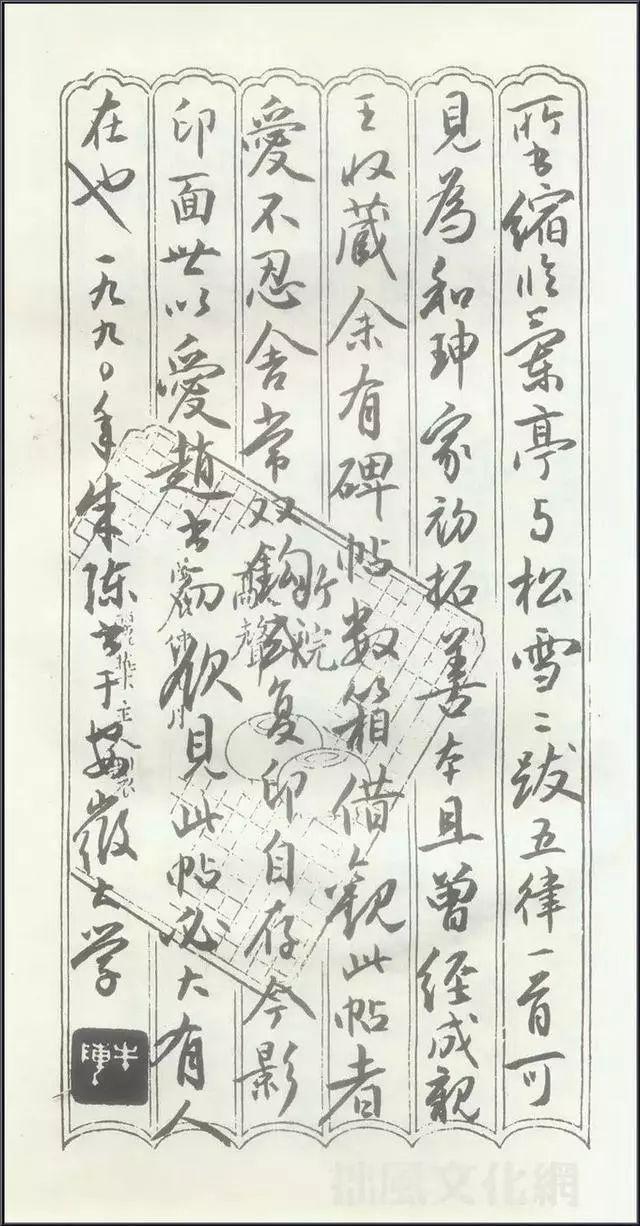 所书縮临蘭亭与松雪二跋五律一首可
見為和珅家初拓善本且曾經成親
王收藏余有碑帖数箱借觀此帖者
愛不忍舍常双鈎或复印自存今影
印面世以愛趙书而欲見此帖必大有人
在也一九九〇年朱陈书于安徽大学
朱陳
拙風文化網